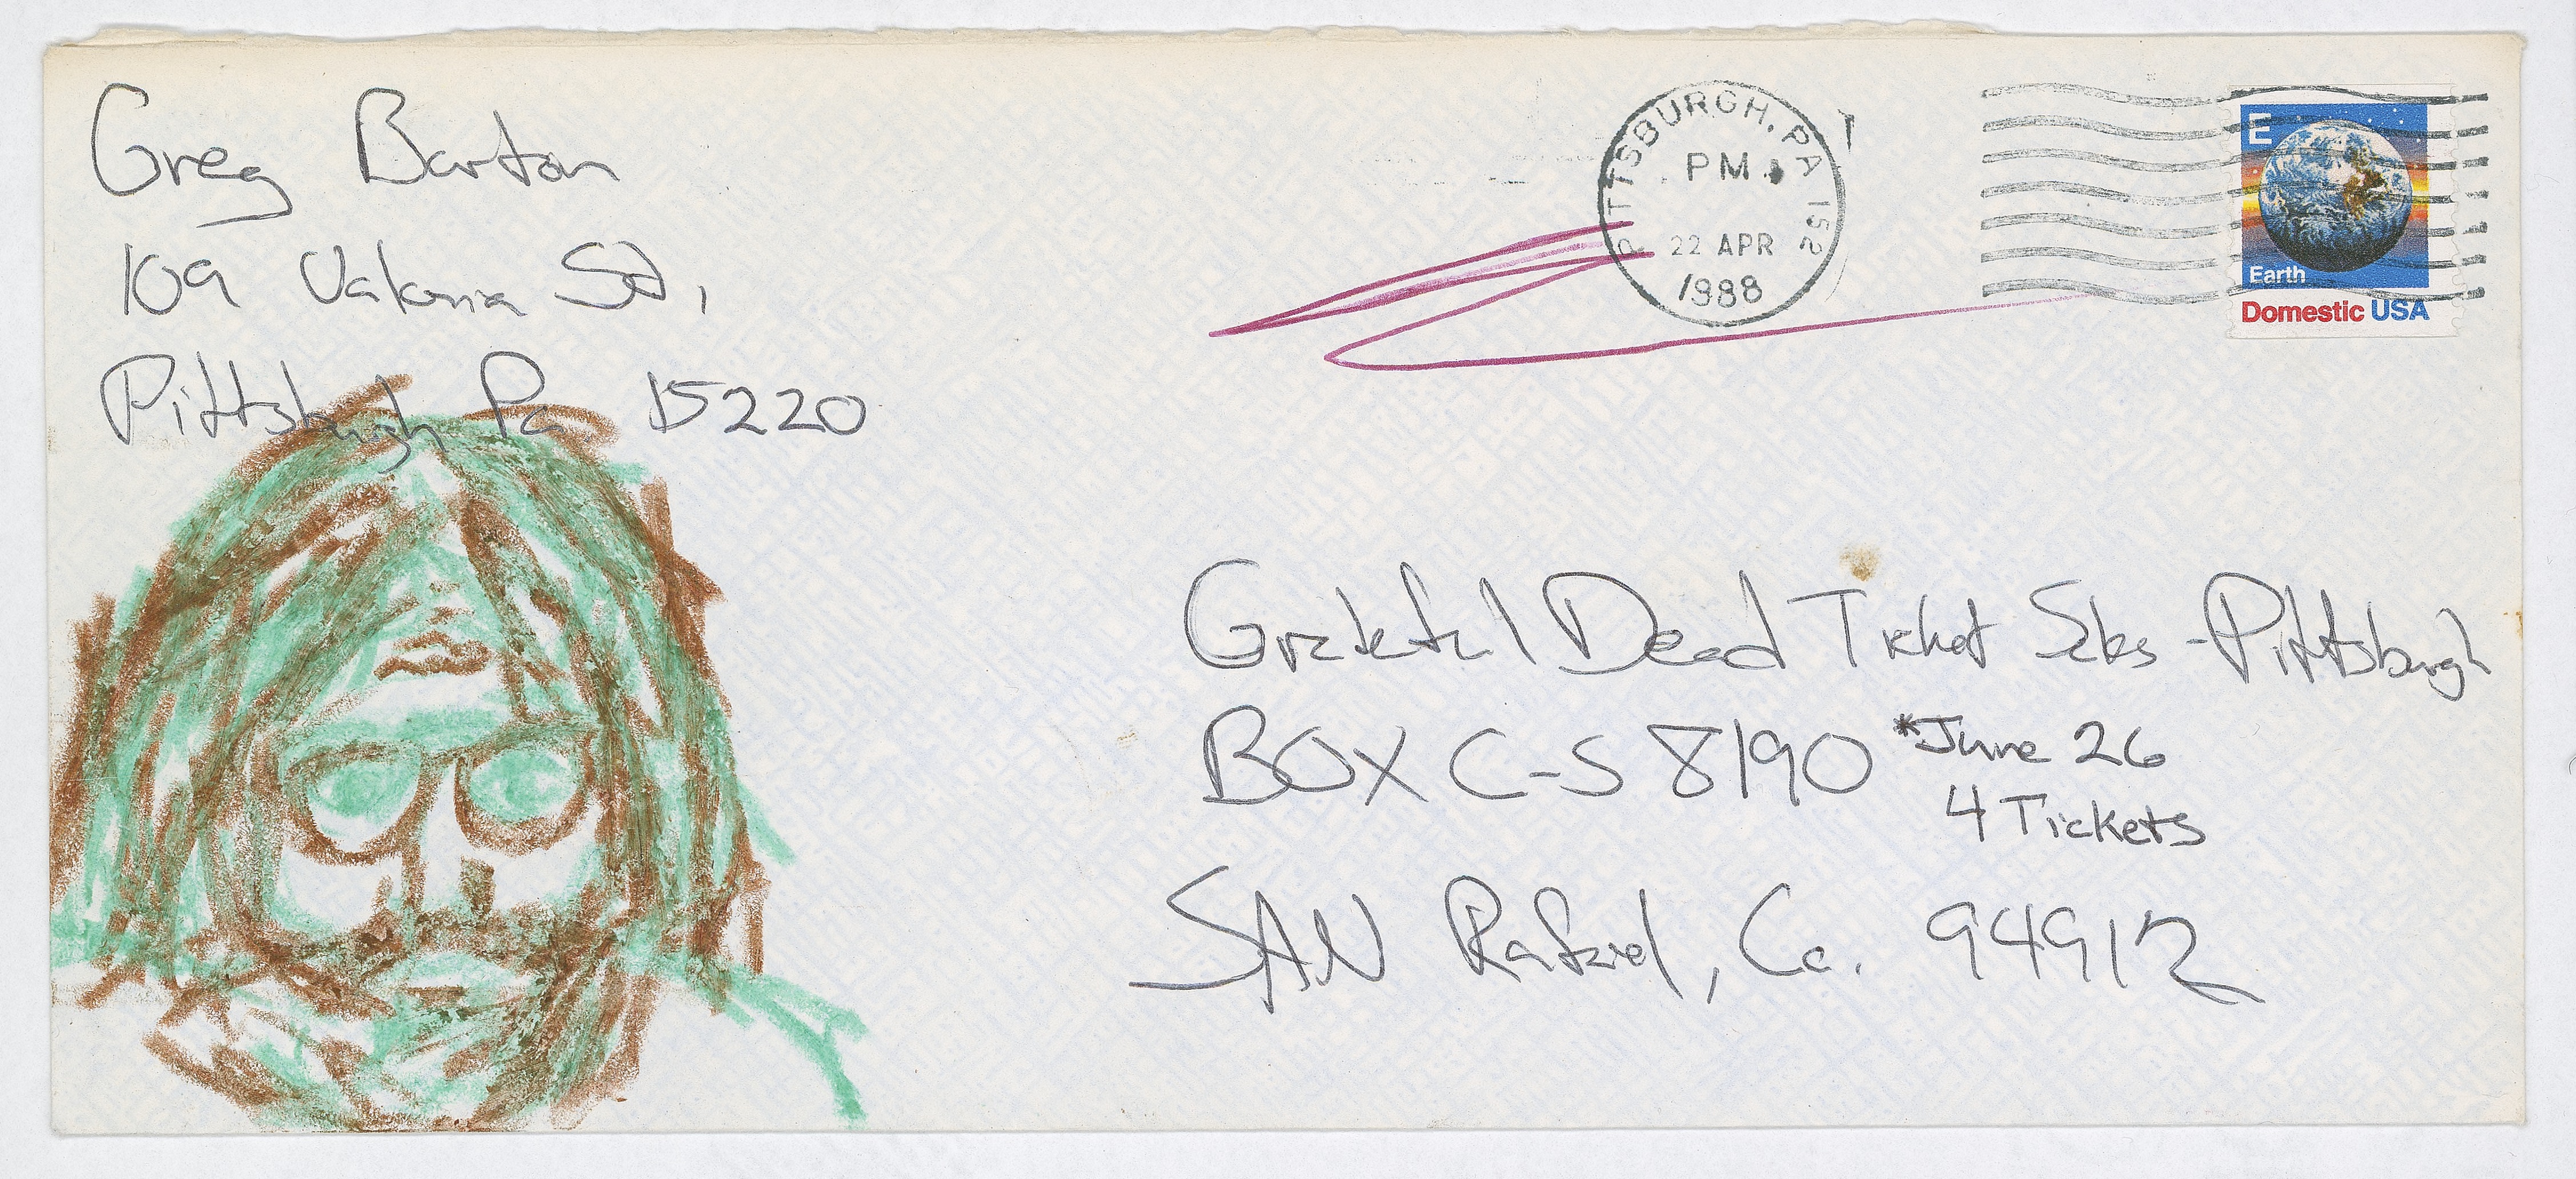 Greg Barton
109 St,
Pittsburgh Pa. 15220
PITTSBURGH, PA 152
PM
22 APR
1988
E
Earth
Domestic USA
Grateful Dead Ticket Sales - Pittsburgh
BOX C-S 8190
*June 26
4 Tickets
SAN Rafael, Ca. 94912